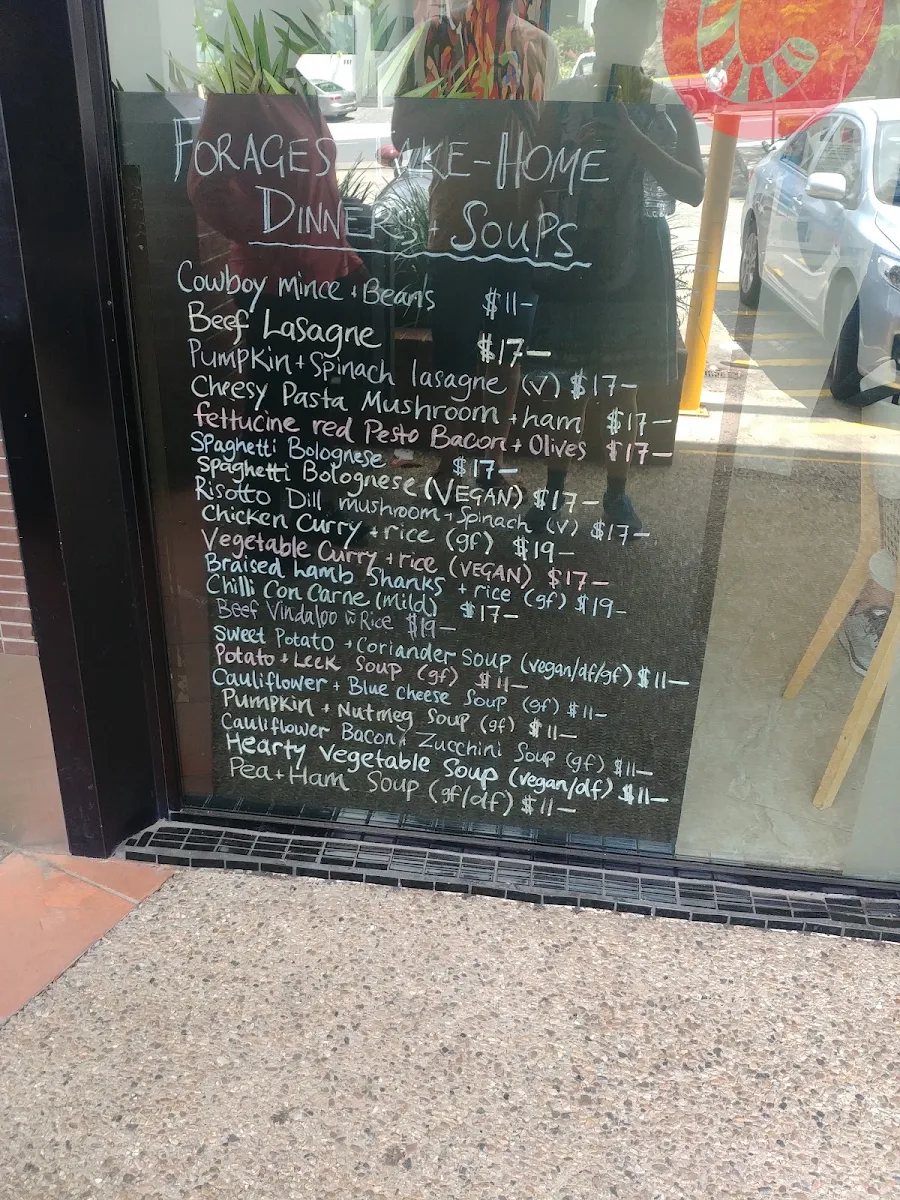 FORAGES TAKE-HOME
DINNERS + SOUPS
Cowboy mince + Beans $11-
Beef Lasagne $17-
Pumpkin + Spinach lasagne (v) $17-
Cheesy Pasta Mushroom + ham $17-
fettucine red Pesto Bacon + Olives $17-
Spaghetti Bolognese $17-
Spaghetti Bolognese (VEGAN) $17-
Risotto Dill mushroom + Spinach (v) $17-
Chicken Curry + rice (gf) $19-
Vegetable Curry + rice (VEGAN) $17-
Braised Lamb Shanks + rice (gf) $19-
Chilli Con Carne (mild) $17-
Beef Vindaloo w Rice $19-
Sweet Potato + Coriander Soup (vegan/df/gf) $11-
Potato + Leek Soup (gf) $11-
Cauliflower + Blue cheese Soup (gf) $11-
Pumpkin + Nutmeg Soup (gf) $11-
Cauliflower Bacon + Zucchini Soup (gf) $11-
Hearty Vegetable Soup (vegan/df) $11-
Pea + Ham Soup (gf/df) $11-